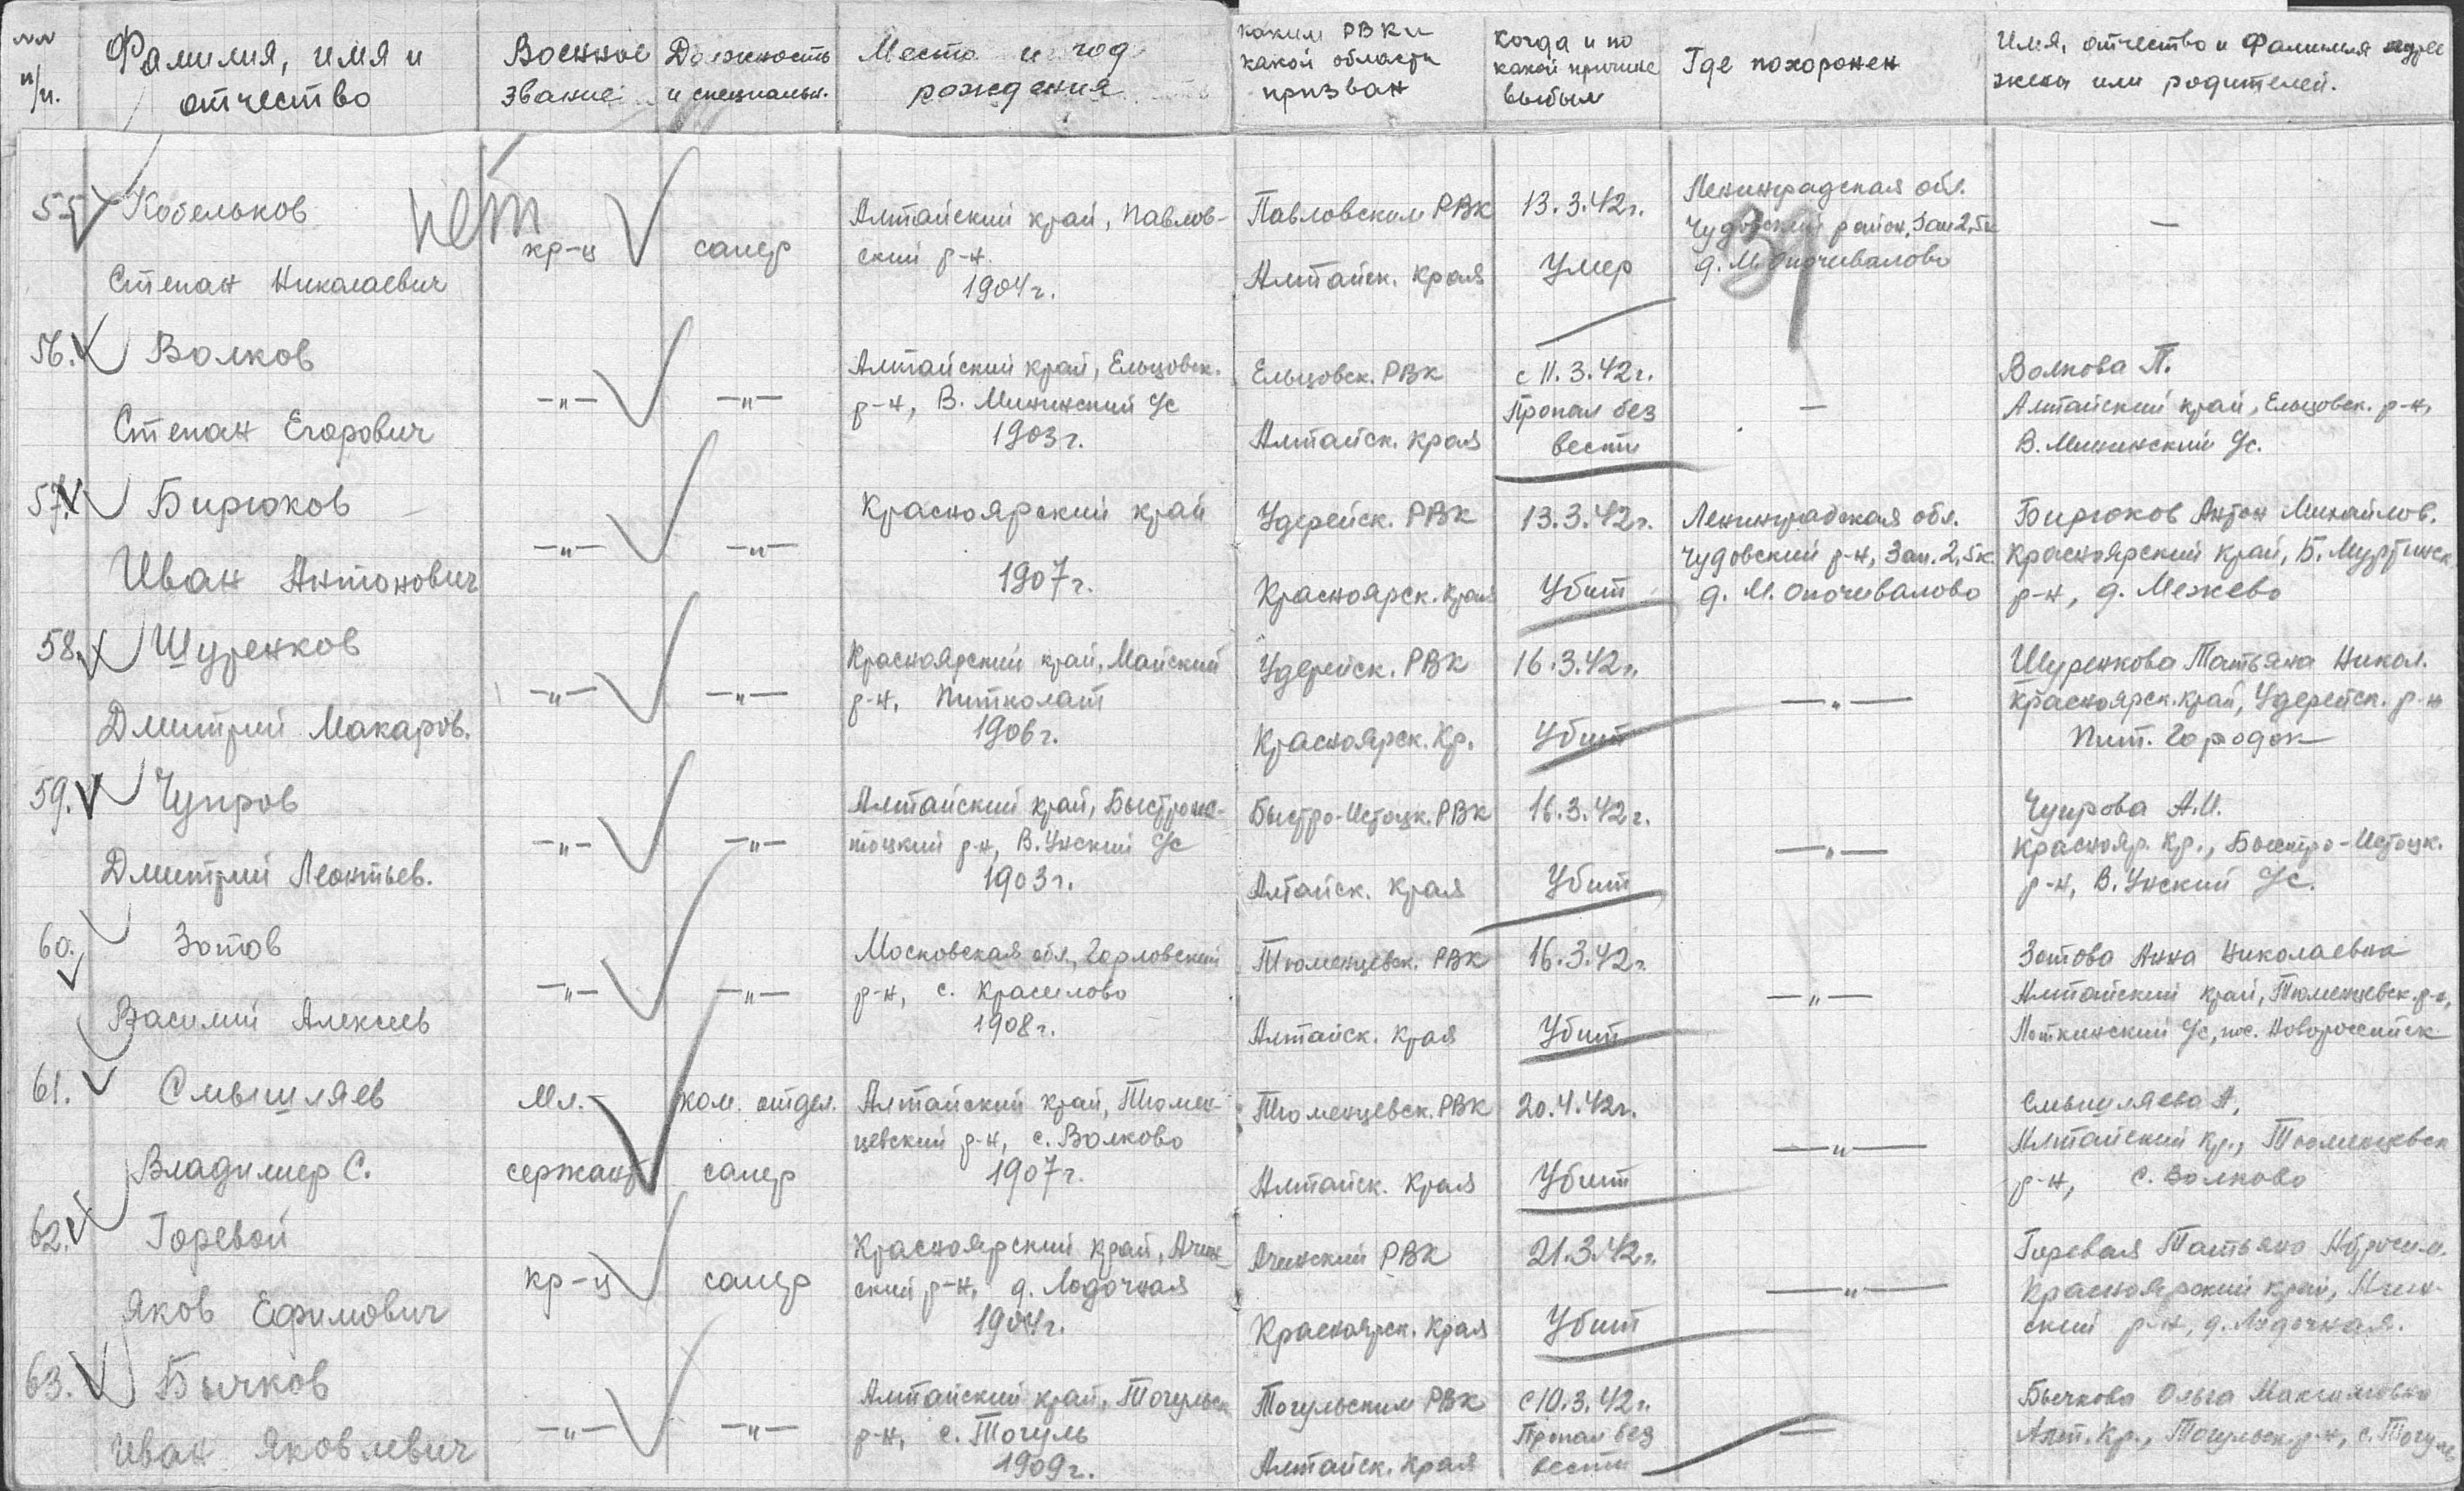 №№ п/п.
Фамилия, имя и отчество
Военное звание
Должность и специальн.
Место и год рождения
каким РВК и какой области призван
когда и по какой причине выбыл
Где похоронен
Имя, отчество и фамилия адрес жены или родителей.
55 Кобельков нет
Степан Николаевич
кр-ц
сапер
Алтайский край, Павлов-
ский р-н.
1904г.
Павловским РВК
Алтайск. края
13.3.42г.
Умер
Ленинградская обл.
Чудовский район, Зап 2,5к
д. М. Опочивалово
39
—
56. Волков
Степан Егорович
—„—
—„—
Алтайский край, Ельцовск.
р-н, В. Мининский с/с
1903г.
Ельцовск. РВК
Алтайск. края
с 11.3.42г.
Пропал без
вести
—
Волкова П.
Алтайский край, Ельцовск. р-н,
В. Мининский с/с.
57. Бирюков
Иван Антонович
—„—
—„—
Красноярский край
1907г.
Удерейск. РВК
Красноярск. края
13.3.42г.
Убит
Ленинградская обл.
Чудовский р-н, Зап. 2,5к.
д. М. Опочивалово
Бирюков Антон Михайлов.
Красноярский край, Б. Муртинск
р-н, д. Межево
58. Шуренков
Дмитрий Макаров.
—„—
—„—
Красноярский край, Майский
р-н, Питколат
1906г.
Удерейск. РВК
Красноярск. Кр.
16.3.42г.
Убит
—„—
Шуренкова Татьяна Никол.
Красноярск. край, Удерейск. р-н
Пит. Городок
59. Чупров
Дмитрий Леонтьев.
—„—
—„—
Алтайский край, Быстроис-
тоцкий р-н, В. Унский с/с
1903г.
Быстро-Истоцк. РВК
Алтайск. края
16.3.42г.
Убит
—„—
Чупрова А.И.
Краснояр. Кр., Быстро-Истоцк.
р-н, В. Унский с/с.
60. Зотов
Василий Алексеев
—„—
—„—
Московская обл., Горловский
р-н, с. Красилово
1908г.
Тюменцевск. РВК
Алтайск. края
16.3.42г.
Убит
—„—
Зотова Анна Николаевна
Алтайский край, Тюменцевск. р-н,
с/с, пос. Новороссийск
61. Смышляев
Владимир С.
Мл.
сержант
ком. отдел.
сапер
Алтайский край, Тюмен-
цевский р-н, с. Волково
1907г.
Тюменцевск. РВК
Алтайск. края
20.4.42г.
Убит
—„—
Смышляева А,
Алтайский кр., Тюменцевск
р-н, с. Волково
62. Горевой
Яков Ефимович
кр-ц
сапер
Красноярский край, Ачин-
ский р-н, д. Лодочная
1904г.
Ачинский РВК
Красноярск. края
21.3.42г.
Убит
—„—
Горевая Татьяна
Красноярский край, Ачин-
ский р-н, д. Лодочная.
63. Бычков
Иван Яковлевич
—„—
—„—
Алтайский край, Тогульск
р-н, с. Тогуль
1909г.
Тогульским РВК
Алтайск. края
с 10.3.42г.
Пропал без
вести
—
Бычкова Ольга Максимовна
Алт. Кр., Тогульск. р-н, с. Тогуль